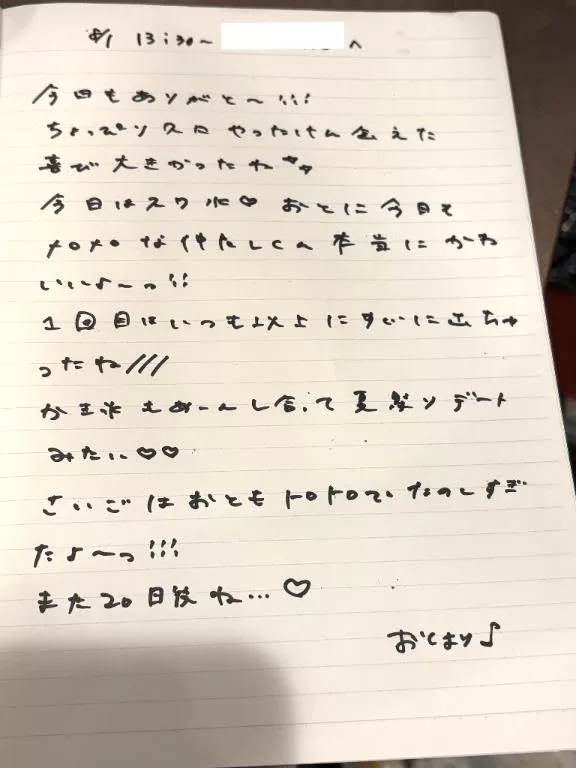 8/1 13:30〜 へ
今回もありがと〜!!!
ちょっぴり久々 やったけん会えた
喜び大きかったね
今日は ♡ おとに今日も
メロメロな 本当にかわ
いいよ〜っ!!
1回目はいつも以上にすぐに出ちゃ
ったね///
かき氷もあーんし合って夏祭りデート
みたい♡♡
さいごはおともトロトロで たのしすぎ
たよ〜っ!!!
また20日後ね…♡
おとはり♪